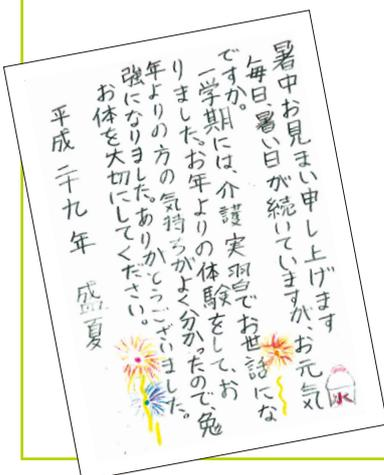 暑中お見まい申し上げます
毎日、暑い日が続いていますが、お元気
ですか。
一学期には、介護実習でお世話にな
りました。お年よりの体験をして、お
年よりの方の気持ちがよく分かったので、勉
強になりました。ありがとうございました。
お体を大切にしてください。
平成二十九年 盛夏
氷